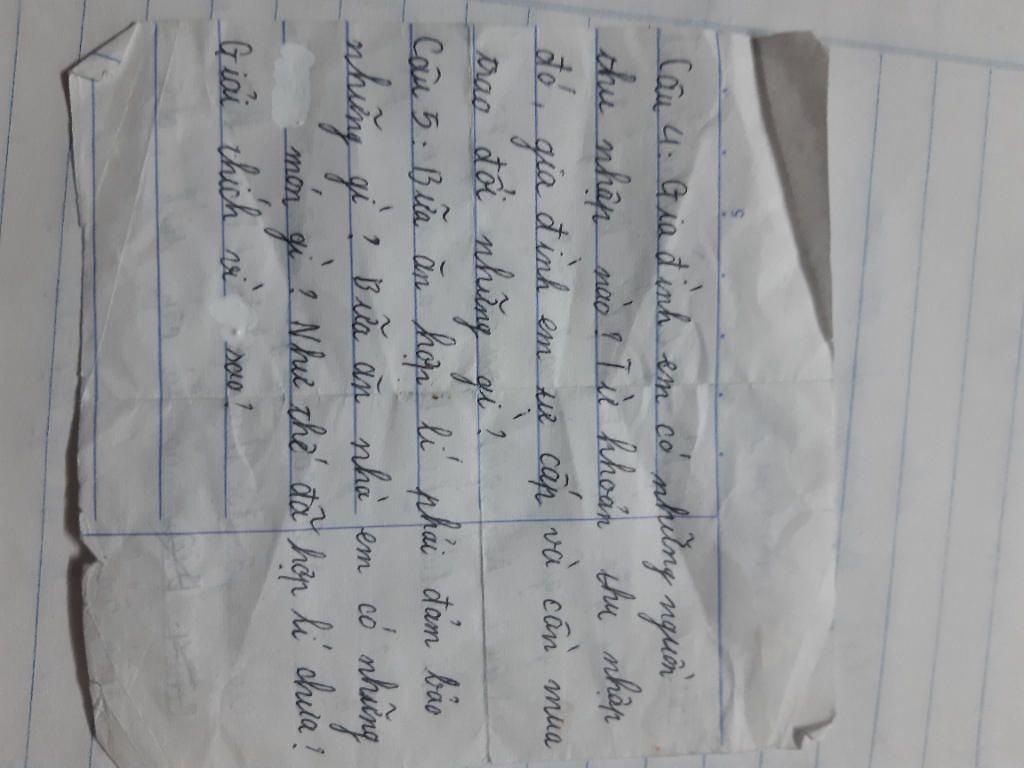 5
Câu 4. Gia đình em có những nguồn
thu nhập nào? Từ khoản thu nhập
đó, gia đình em sẽ cấp và cần mua
trao đổi những gì?
Câu 5. Bữa ăn hợp lí phải đảm bảo
những gì? Bữa ăn nhà em có những
món gì? Như thế đã hợp lí chưa?
Giải thích vì sao?